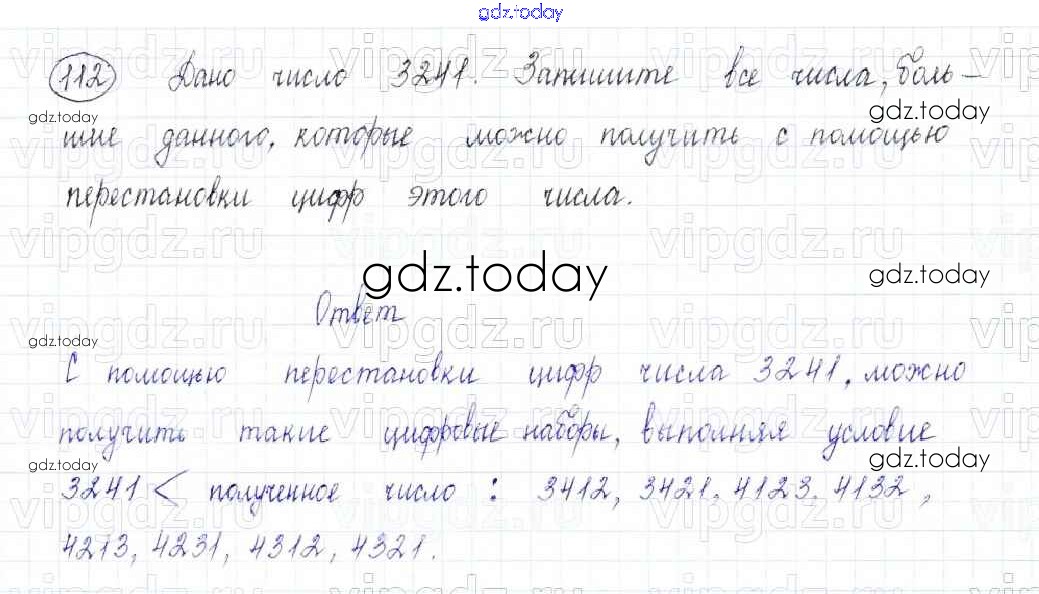 gdz.today
112 Дано число 3241. Запишите все числа, боль-
gdz.today gdz.today
шие данного, которые можно получить с помощью
перестановки цифр этого числа.
gdz.today gdz.today
Ответ
gdz.today
С помощью перестановки цифр числа 3241, можно
получить такие цифровые наборы, выполняя условие
gdz.today gdz.today
3241 < полученное число : 3412, 3421, 4123, 4132,
4213, 4231, 4312, 4321.
vipgdz.ru